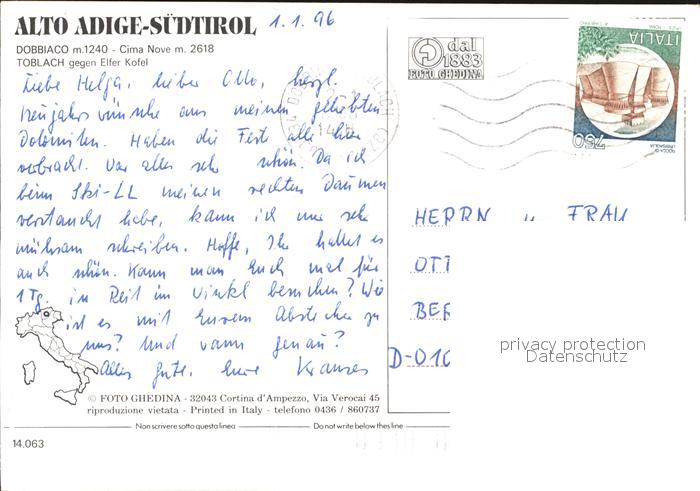 ALTO ADIGE-SÜDTIROL 1.1.96
DOBBIACO m.1240 - Cima Nove m. 2618
TOBLACH gegen Elfer Kofel
Liebe Helga, lieber Otto, herzl.
Neujahrswünsche aus meinen geliebten
Dolomiten. Haben die Feste alle hier
verbracht. War alles sehr schön. Da ich
beim Ski-LL meinen rechten Daumen
verstaucht habe, kann ich nur sehr
mühsam schreiben. Hoffe, Ihr hattet es
auch schön. Kann man Euch mal für
1 Tg. in Reit im Winkl besuchen? Wie
ist es mit Eurem Abstecher zu
uns? Und wann genau?
Alles Gute. Eure
© FOTO GHEDINA - 32043 Cortina d'Ampezzo, Via Verocai 45
riproduzione vietata - Printed in Italy - telefono 0436 / 860737
Non scrivere sotto questa linea Do not write below this line
14.063
dal
1883
FOTO GHEDINA
ITALIA
750
ROCCA DI
URBISAGLIA
HERRN u. FRAU
OTT
BER
D-010
privacy protection
Datenschutz